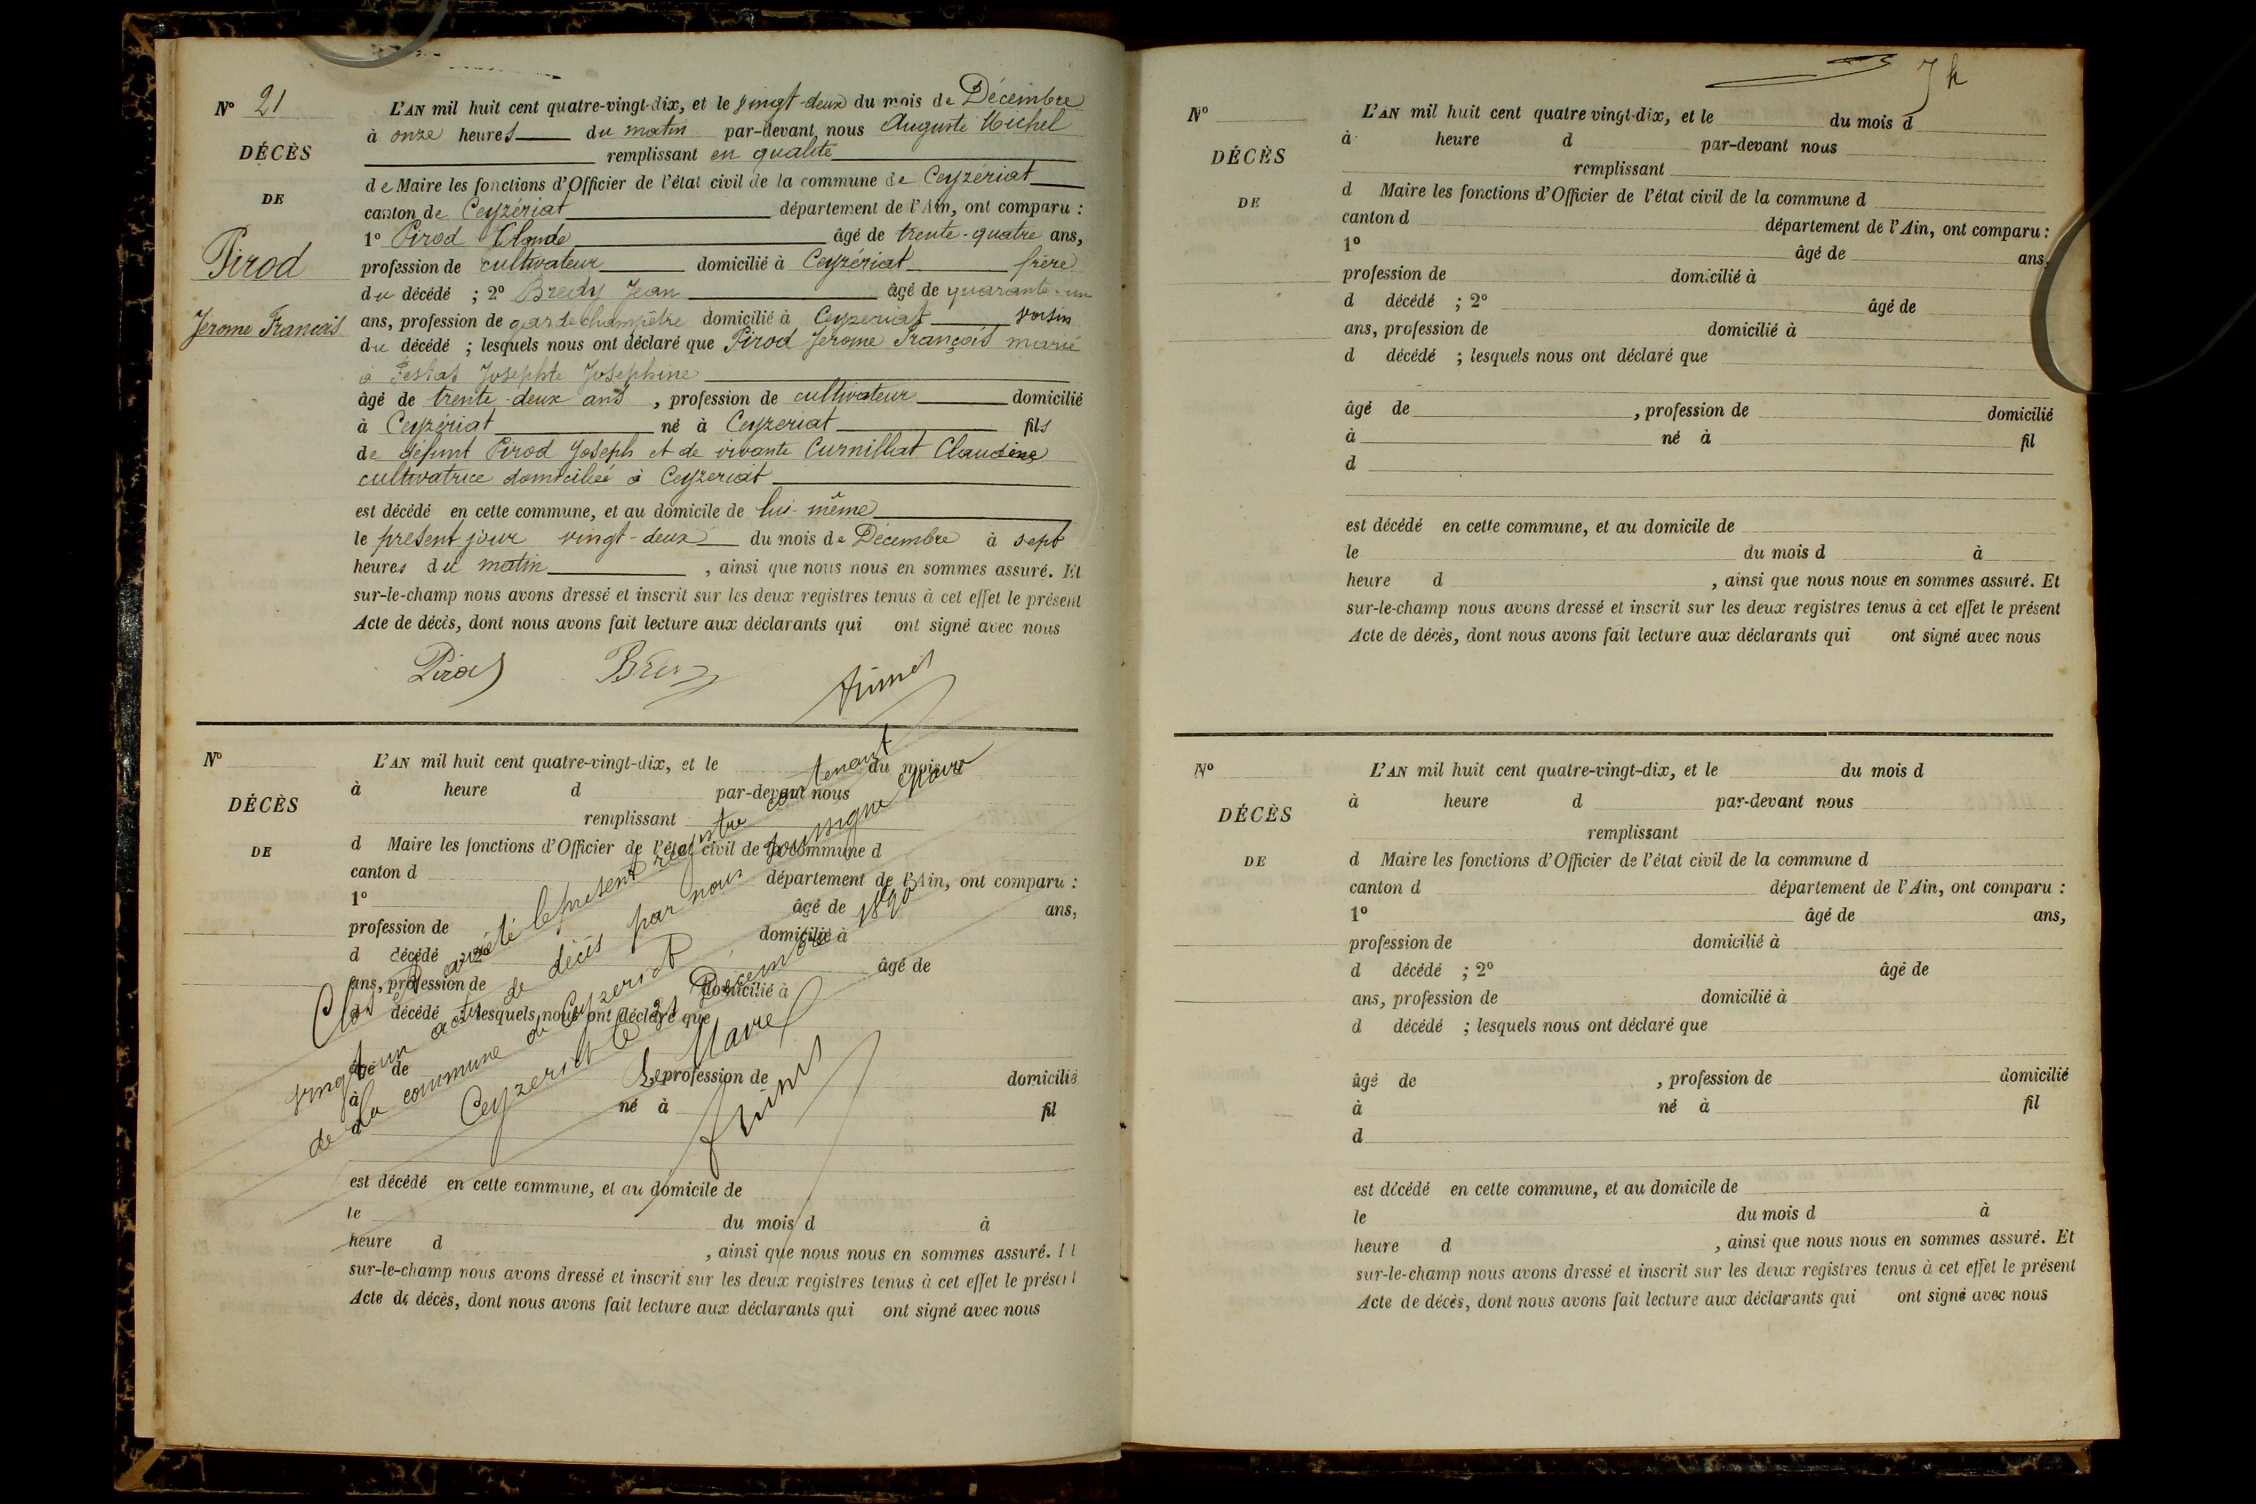 N° 21
DÉCÈS
DE
Pirod
Jerome François
L'AN mil huit cent quatre-vingt-dix, et le vingt-deux du mois de Décembre
à onze heures du matin par-devant nous Auguste Michel
remplissant en qualité
de Maire les fonctions d'Officier de l'état civil de la commune de Ceyzériat
canton de Ceyzériat département de l'Ain, ont comparu :
1° Pirod Claude âgé de trente-quatre ans,
profession de cultivateur domicilié à Ceyzériat frère
du décédé ; 2° Bredy Jean âgé de quarante-un
ans, profession de garde champêtre domicilié à Ceyzeriat voisin
du décédé ; lesquels nous ont déclaré que Pirod Jerome François marié
à Josephte Josephine
âgé de trente-deux ans , profession de cultivateur domicilié
à Ceyzériat né à Ceyzeriat fils
de défunt Pirod Joseph et de vivante Curnillat Claudine
cultivatrice domiciliée à Ceyzeriat
est décédé en cette commune, et au domicile de lui même
le présent jour vingt-deux du mois de Décembre à sept
heures du matin , ainsi que nous nous en sommes assuré. Et
sur-le-champ nous avons dressé et inscrit sur les deux registres tenus à cet effet le présent
Acte de décès, dont nous avons fait lecture aux déclarants qui ont signé avec nous
Pirod
N°
DÉCÈS
DE
L'AN mil huit cent quatre-vingt-dix, et le du mois d
à heure d par-devant nous
remplissant
d Maire les fonctions d'Officier de l'état civil de la commune d
canton d département de l'Ain, ont comparu :
1° âgé de ans,
profession de domicilié à
d décédé ; 2° âgé de
ans, profession de domicilié à
d décédé ; lesquels nous ont déclaré que
âgé de , profession de domicilié
à né à fil
d
est décédé en cette commune, et au domicile de
le du mois d à
heure d , ainsi que nous nous en sommes assuré. Et
sur-le-champ nous avons dressé et inscrit sur les deux registres tenus à cet effet le présent
Acte de décès, dont nous avons fait lecture aux déclarants qui ont signé avec nous
Clos et arrêté le présent registre contenant
vingt-un actes de décès par nous soussigné Maire
de la commune de Ceyzeriat
Ceyzeriat le 31 Décembre 1890
Le Maire
N°
DÉCÈS
DE
L'AN mil huit cent quatre vingt-dix, et le du mois d
à heure d par-devant nous
remplissant
d Maire les fonctions d'Officier de l'état civil de la commune d
canton d département de l'Ain, ont comparu :
1° âgé de ans,
profession de domicilié à
d décédé ; 2° âgé de
ans, profession de domicilié à
d décédé ; lesquels nous ont déclaré que
âgé de , profession de domicilié
à né à fil
d
est décédé en cette commune, et au domicile de
le du mois d à
heure d , ainsi que nous nous en sommes assuré. Et
sur-le-champ nous avons dressé et inscrit sur les deux registres tenus à cet effet le présent
Acte de décès, dont nous avons fait lecture aux déclarants qui ont signé avec nous
N°
DÉCÈS
DE
L'AN mil huit cent quatre-vingt-dix, et le du mois d
à heure d par-devant nous
remplissant
d Maire les fonctions d'Officier de l'état civil de la commune d
canton d département de l'Ain, ont comparu :
1° âgé de ans,
profession de domicilié à
d décédé ; 2° âgé de
ans, profession de domicilié à
d décédé ; lesquels nous ont déclaré que
âgé de , profession de domicilié
à né à fil
d
est décédé en cette commune, et au domicile de
le du mois d à
heure d , ainsi que nous nous en sommes assuré. Et
sur-le-champ nous avons dressé et inscrit sur les deux registres tenus à cet effet le présent
Acte de décès, dont nous avons fait lecture aux déclarants qui ont signé avec nous